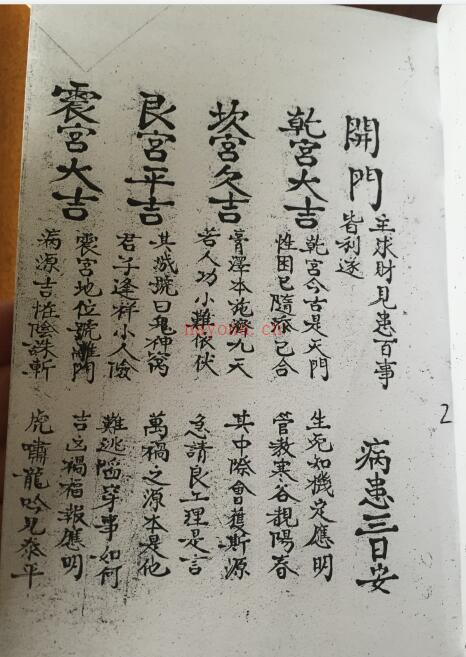 開門 主求財見患百事
皆利遂
病患三日安
乾宮大吉 乾宮今古是天門 生死知機定應明
性困已隨 已合 管教寒谷覩陽春
坎宮久吉 膏澤本施濟九天 其中際會獲斯源
若人功小難依伏 急請良工理是言
艮宮平吉 其 號曰鬼神窩 萬禍之源本是他
君子逢祥小人儉 難逃陷穽事如何
震宮大吉 震宮地位號離門 吉凶禍福報應明
病源吉性陰誅斬 虎嘯龍吟見泰平
2